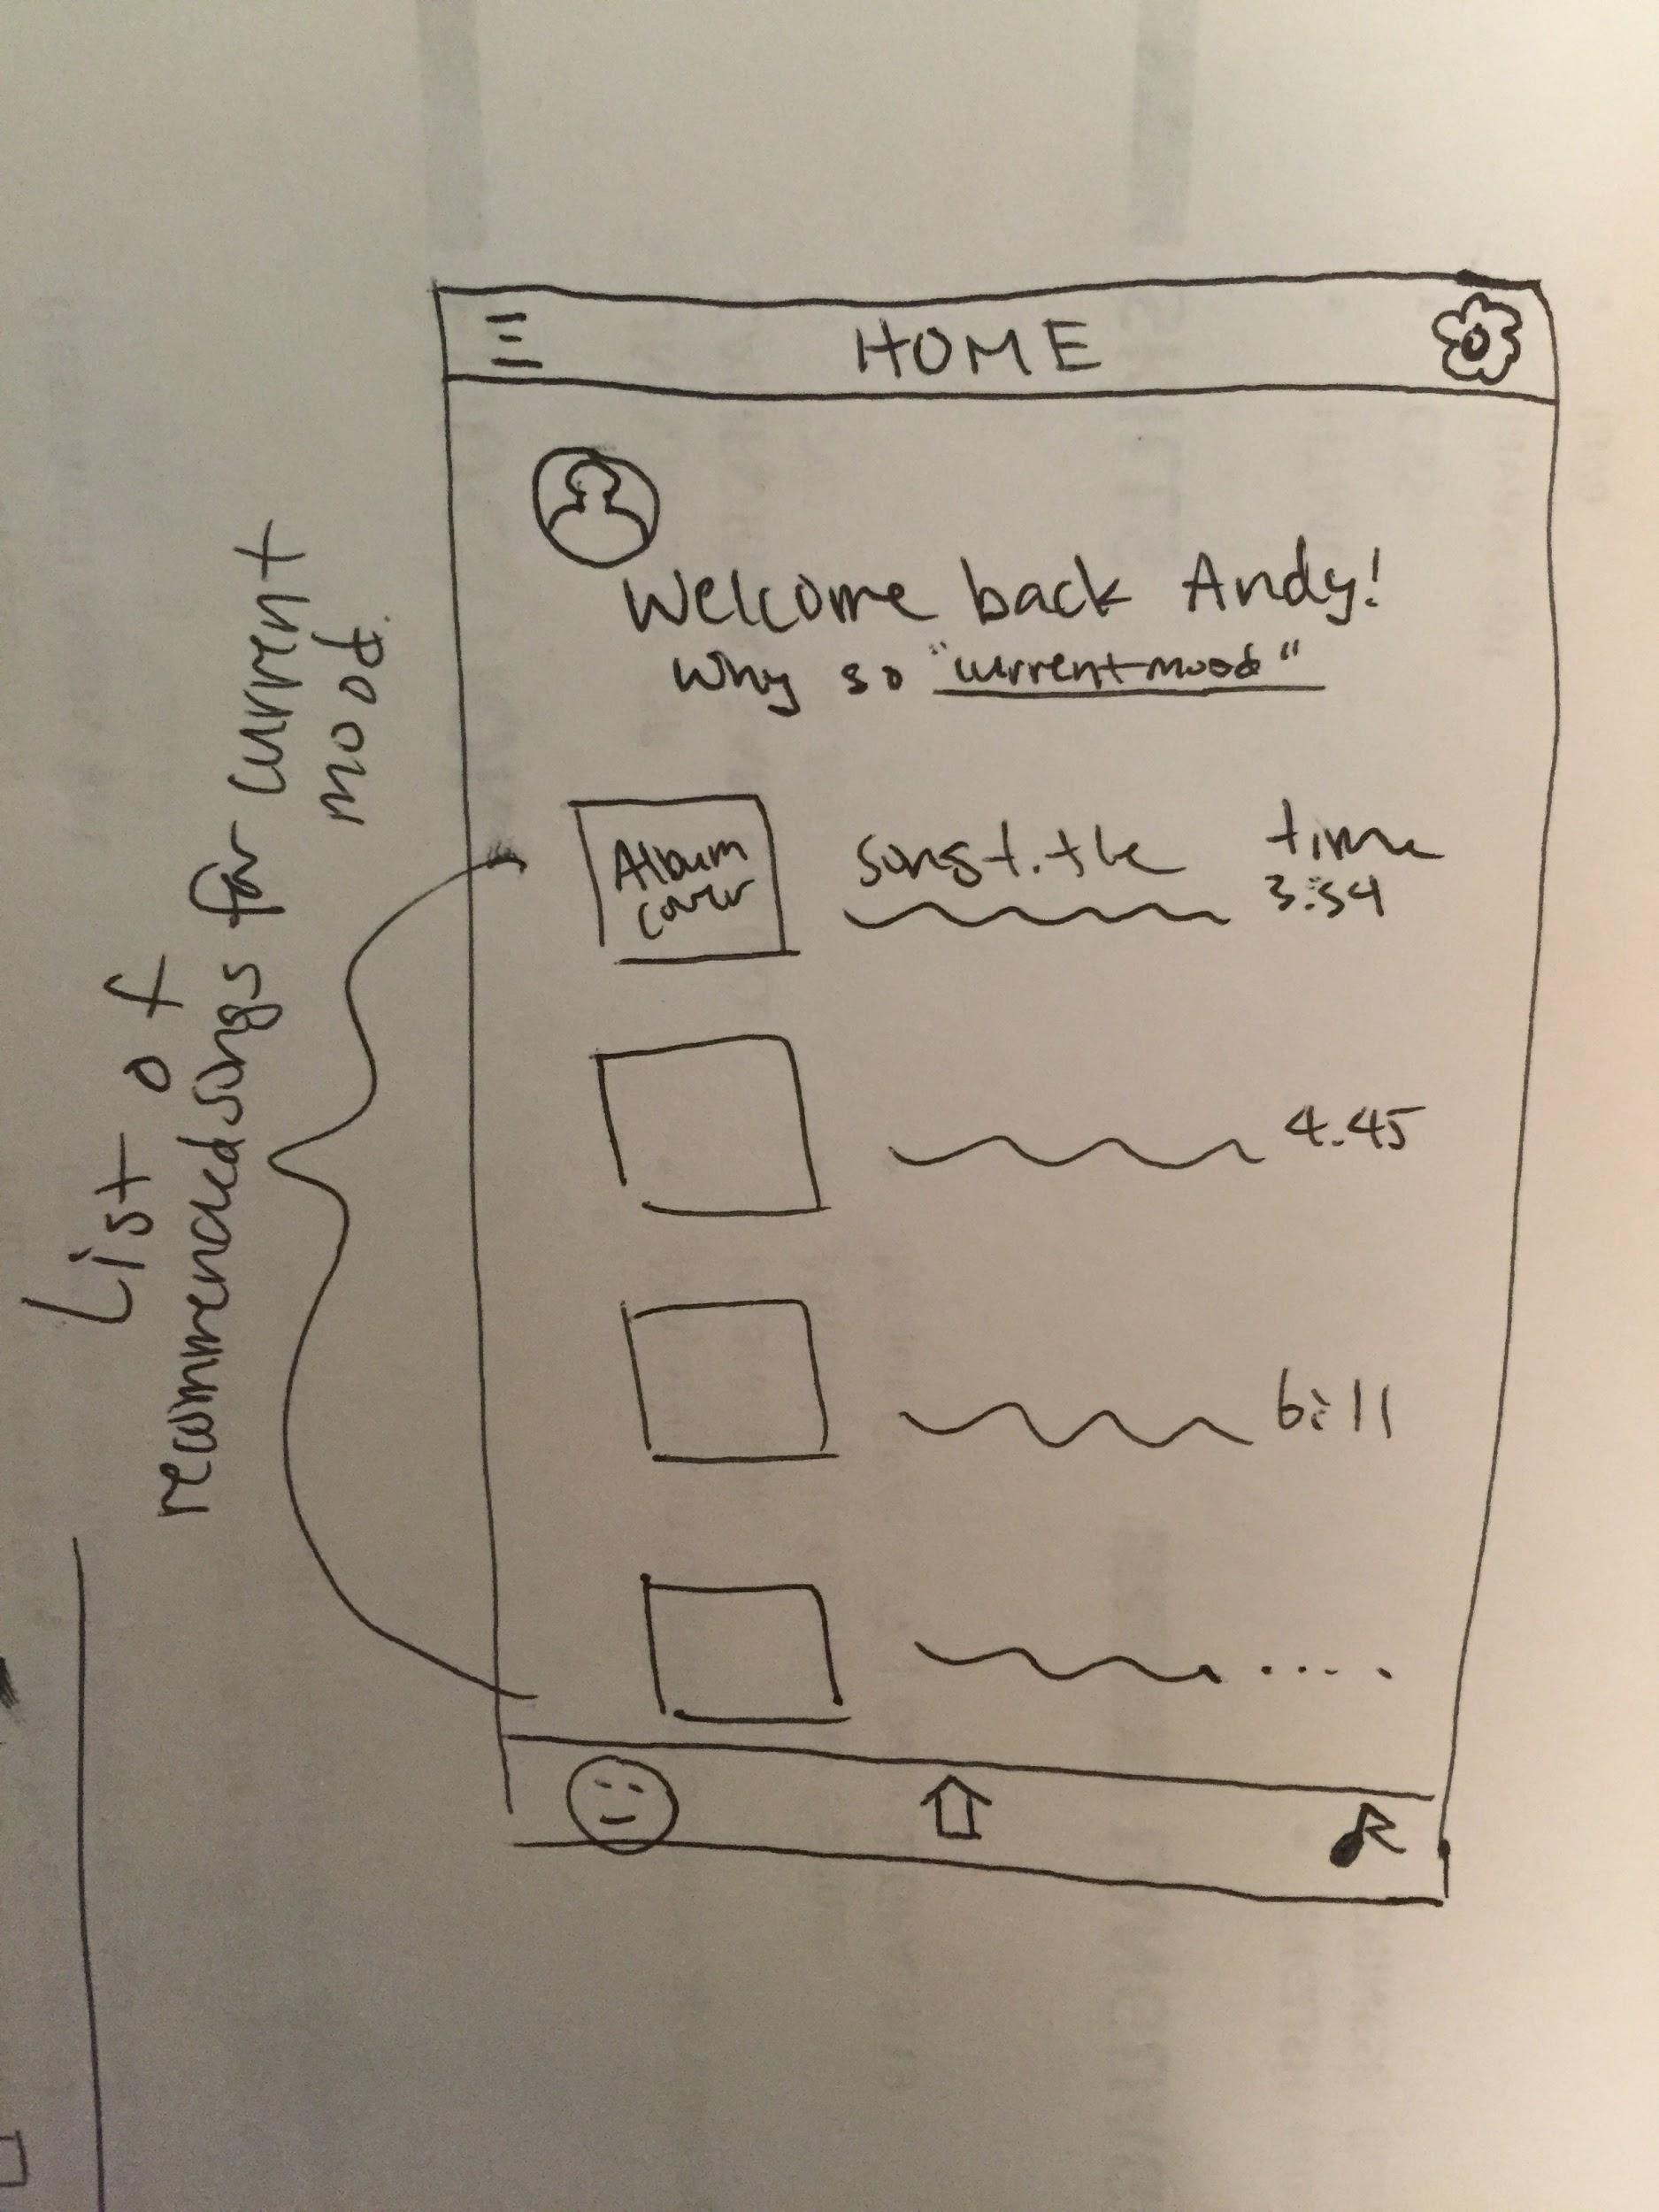 HOME
Welcome back Andy!
Why so "current mood"
Album
cover
song title
time
3:54
4.45
6:11
List of
recommended songs for current
mood.